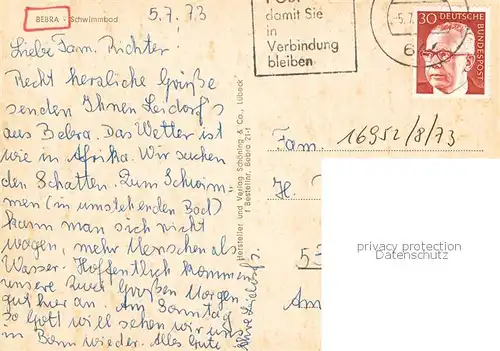 BEBRA - Schwimmbad
5.7.73
Liebe Fam. Richter.
Recht herzliche Grüße
senden Ihnen Leidorf's
aus Bebra. Das Wetter ist
wie in Afrika. Wir suchen
den Schatten. Zum Schwim-
men (im umstehenden Bad)
kann man sich nicht
wagen, mehr Menschen als
Wasser. Hoffentlich kommen
unsere zwei Großen Morgen
gut hier an. Am Sonntag
so Gott will sehen wir uns
in Bonn wieder. Alles Gute
Ihre Leidorf's.
Hersteller und Verlag Schöning & Co., Lübeck
Bestellnr. Bebra 21+
damit Sie
in
Verbindung
bleiben
-5.7.
6
30
DEUTSCHE
BUNDESPOST
Fam.
16952/8/73
H.
53
Am
privacy protection
Datenschutz